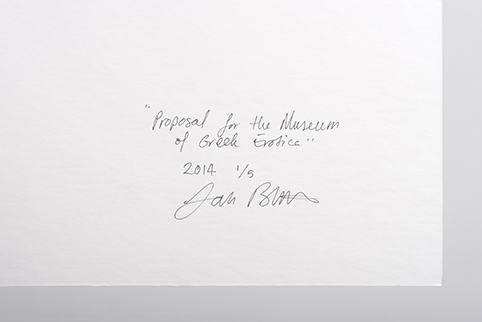 "Proposal for the Museum
of Greek Erotica"
2014 1/5